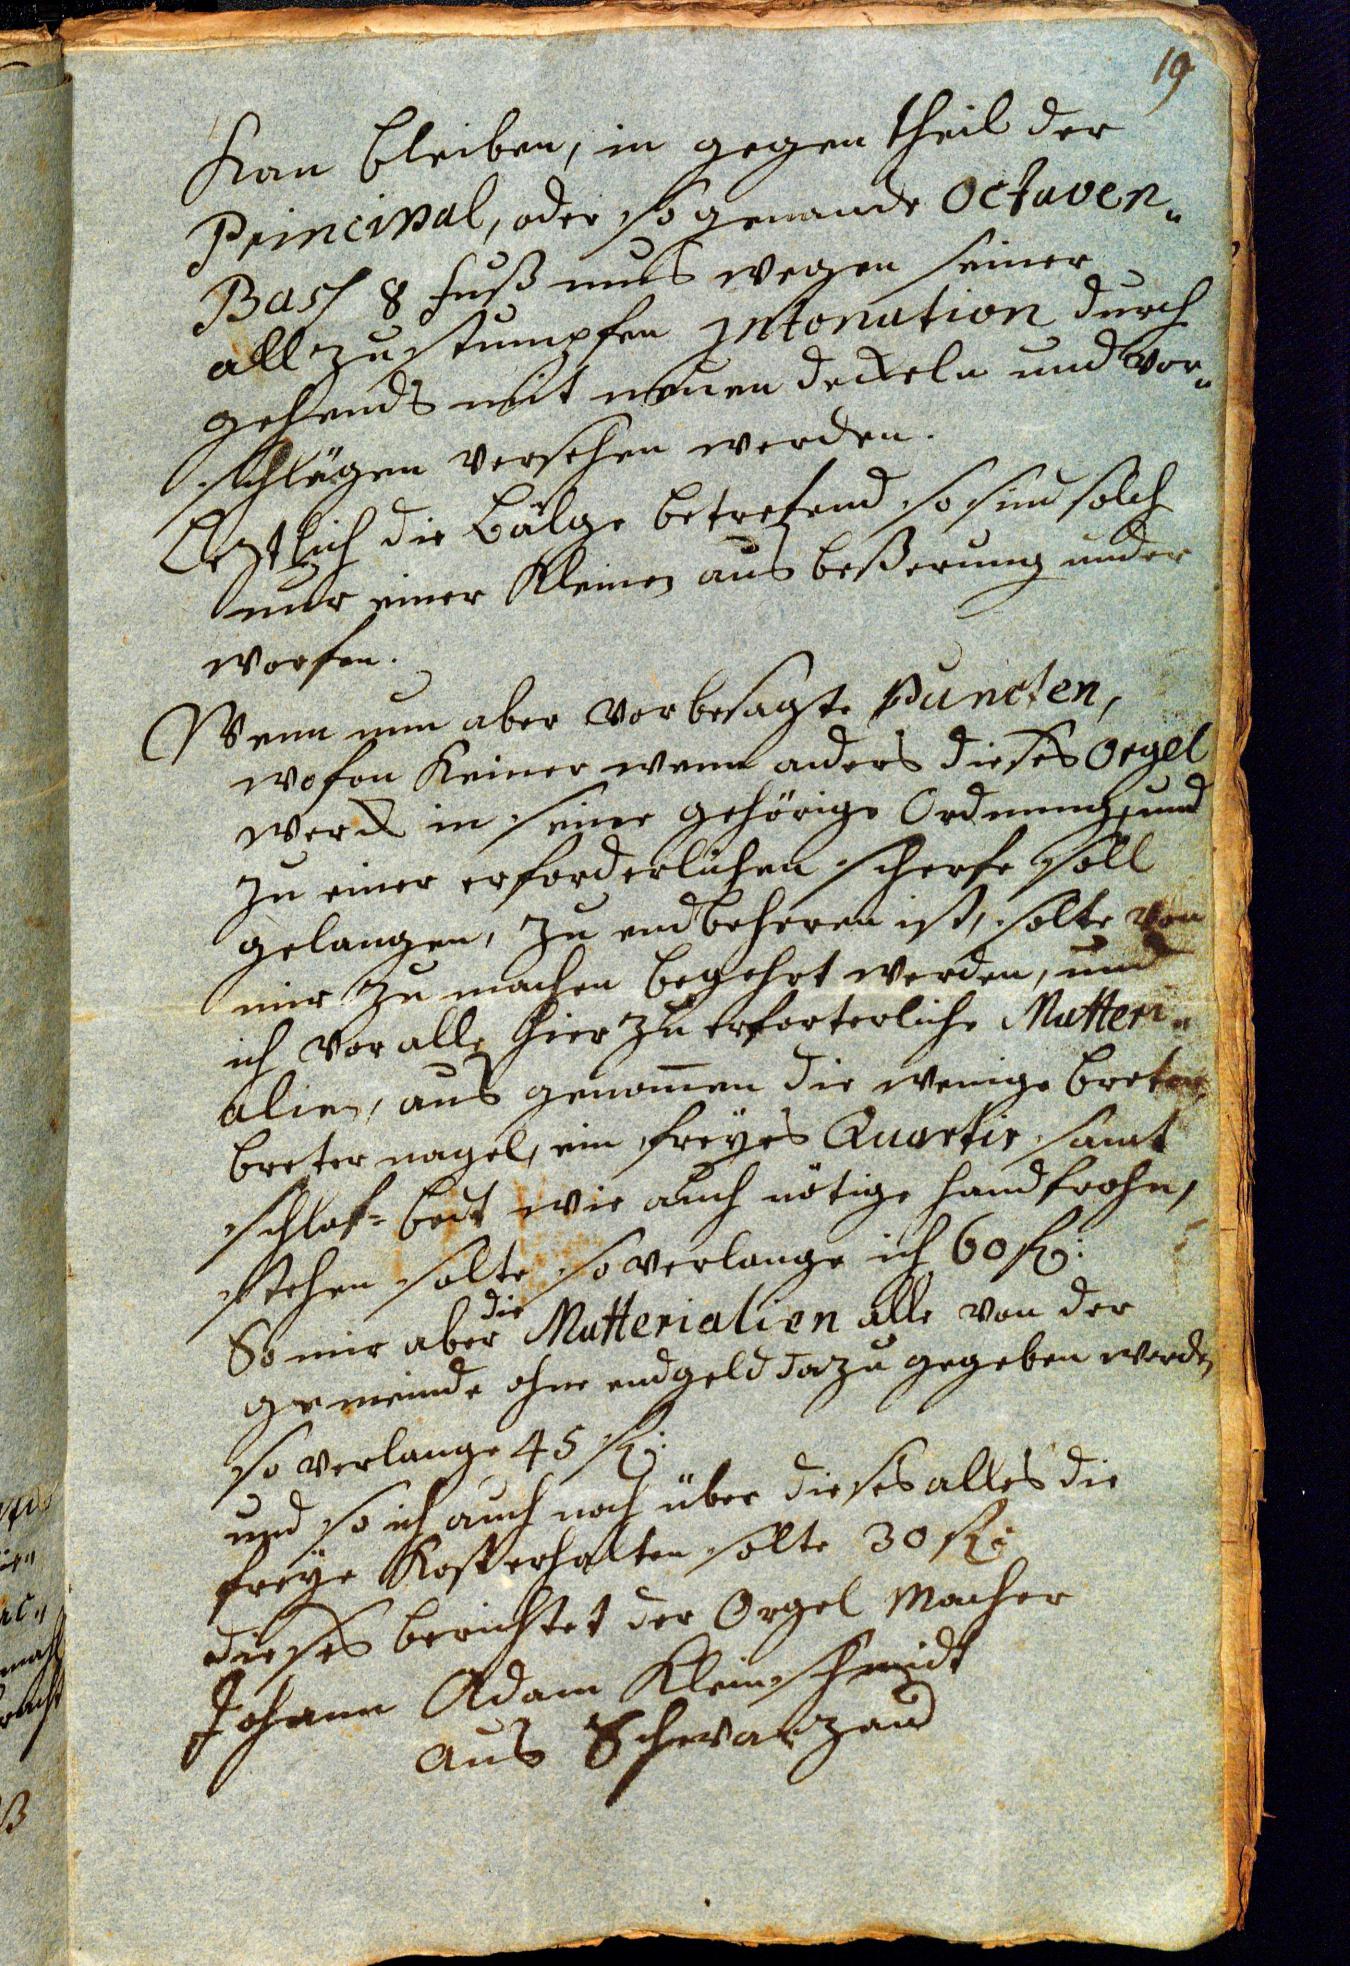 19
Kan bleiben, in gegen theil der
Principal, oder so genande Octaven„
Bass 8 fuß mus wegen seiner
all zu stumpfen Intonation durch
gehends mit neuen deckeln und vor„
schlägen versehen werden.
Letztlich die Bälge betrefend so sind solch
nur einer Kleinen aus beßerung under
worfen.
Wenn nun aber vor besagte Puncten,
wofon Keiner wenn anders dieses Orgel
werck in seine gehörige Ordnung, und
zu einer erforderlichen scherfe soll
gelangen, zu endbeheren ist, solte von
mir zu machen begehrt werden, und
ich vor alle hier zu erforterliche Matteri„
alien, aus genom̅en die wenige breter
breter nagel, ein freyes Quartir samt
schlaf= bett wie auch nötige handfrohn,
stehen solte so verlange ich 60 fl:
So mir aber die Matterialien alle von der
gemeinde ohne endgeld dazu gegeben werden
so verlange 45 fl:
und so ich auch noch über dieses alles die
freye Kost erhalten solte 30 fl:
dieses berichtet der Orgel Macher
Johann Adam Kleinschmidt
aus Schwarzand